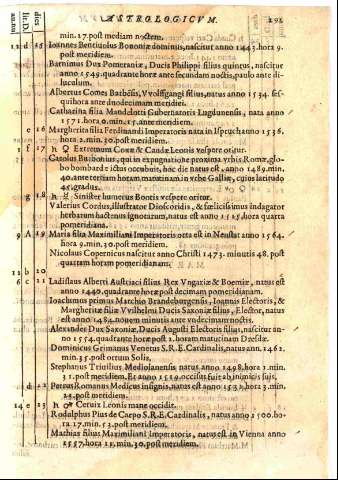 ASTROLOGICVM. 292
dies
lit. D.
au. nu.
min. 27. post mediam noctem.
12 d 15 Ioannes Bentiuolus Bononiæ dominus, nascitur anno 1443. hora 9.
post meridiem.
Barnimus Dux Pomeraniæ, Ducis Philippi filius quintus, nascitur
anno 1549. quadrante horæ ante secundam noctis, paulo ante di-
luculum.
Albertus Comes Barbosis, Vvolffgangi filius, natus anno 1534. ses-
quihora ante duodecimam meridiei.
Catharina filia Mandelotti Gubernatoris Lugdunensis, nata anno
1571. hora 10. min. 15. ante meridiem.
e 16 Margherita filia Ferdinandi Imperatoris nata in Ispruch anno 1536.
hora 2. min. 30. post meridiem.
1 f 17 ♄ ♀ Extremum Coxæ & Caudæ Leonis vespere oritur.
Carolus Burbonius, qui in expugnatione proxima vrbis Romæ, glo-
bo bombardæ ictus occubuit, hoc die natus est, anno 1489. min.
40. ante tertiam horam matutinam in vrbe Galliæ, cuius latitudo
45. graduū.
g 18 ♄ ☿ Sinister humerus Bootis vespere oritur.
Valerius Cordus, illustrator Dioscoridis, & felicissimus indagator
herbarum hactenus ignoratarum, natus est anno 1515. hora quarta
pomeridiana.
9 A 19 Maria filia Maximiliani Imperatoris orta est in Neustat anno 1564.
hora 9. min. 30. post meridiem.
Nicolaus Copernicus nascitur anno Christi 1473. minutis 48. post
quartam horam pomeridianam.
b 20
6 c 21 Ladislaus Alberti Austriaci filius Rex Vngariæ & Boemiæ, natus est
anno 1440. quadrante horæ post decimam pomeridianam.
Ioachimus primus Marchio Brandeburgensis, Ioannis Electoris, &
Margheritæ filiæ Vvilhelmi Ducis Saxoniæ filius, Elector, natus
est anno 1484. nonem minutis ante vndecimam noctis.
Alexander Dux Saxoniæ, Ducis Augusti Electoris filius, nascitur an-
no 1554. quadrante horæ post 1. horam matutinam Dresdæ.
Dominicus Grimanus Venetus S.R.E. Cardinalis, natus ann. 1461.
min. 35. post ortum Solis.
Stephanus Triultius, Mediolanensis natus anno 1498. hora 3. min.
31. post meridiem. Et anno 1519. occisus fuit ab inimicis suis.
d 22 Petrus Romanus Medicus insignis, natus est anno 1512. hora 3. min.
22. post meridiem.
14 e 23 ♄ ♂ Ceruix Leonis mane occidit.
Rodolphus Pius de Carpo S.R.E. Cardinalis, natus anno 1500. ho-
ra 17. min. 53. post meridiem.
Mathias filius Maximiliani Imperatoris, natus est in Vienna anno
1557. hora 11. min. 30. post meridiem.